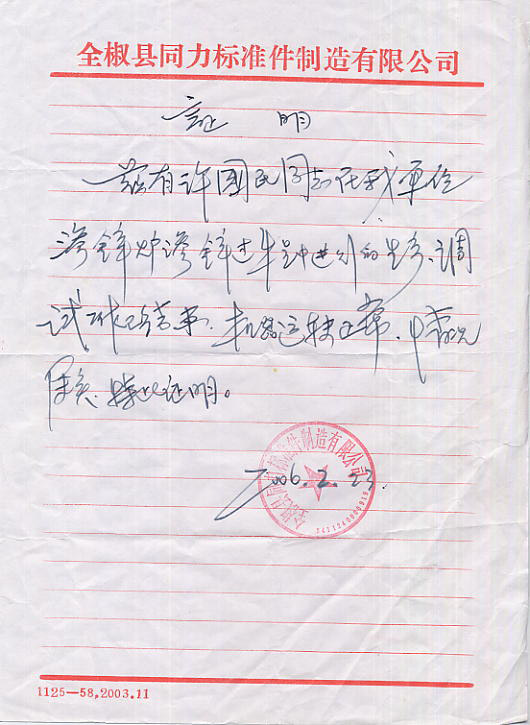 全椒县同力标准件制造有限公司
证 明
兹有许国民同志在我单位
渗锌炉渗锌过车中进行的安、调
试工作已结束、机器运转正常、情况
特此证明。
2006.2.23.
全椒县同力标准件制造有限公司
1125—58,2003.11